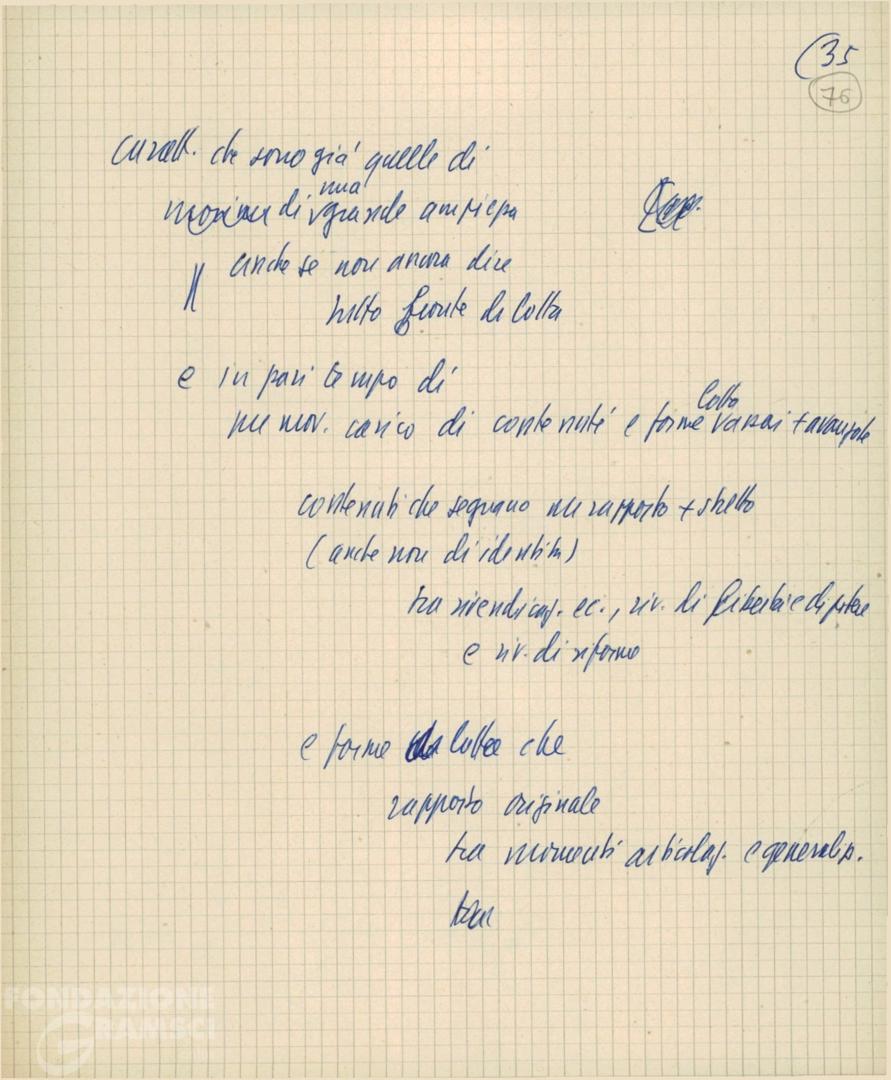 (35
76
caratt. che sono già quelle di
di una grande ampiezza
anche se non ancora dire
tutto fronte di lotta
e in pari tempo di
un mov. carico di contenuti e forme lotta assai + avanzate
contenuti che segnano un rapporto + stretto
(anche non di identità)
tra rivendicaz. ec., riv. di libertà e di potere
e riv. di riforme
e forme lotta che
rapporto originale
tra momenti articolaz. e generaliz.
FONDAZIONE
GRAMSCI